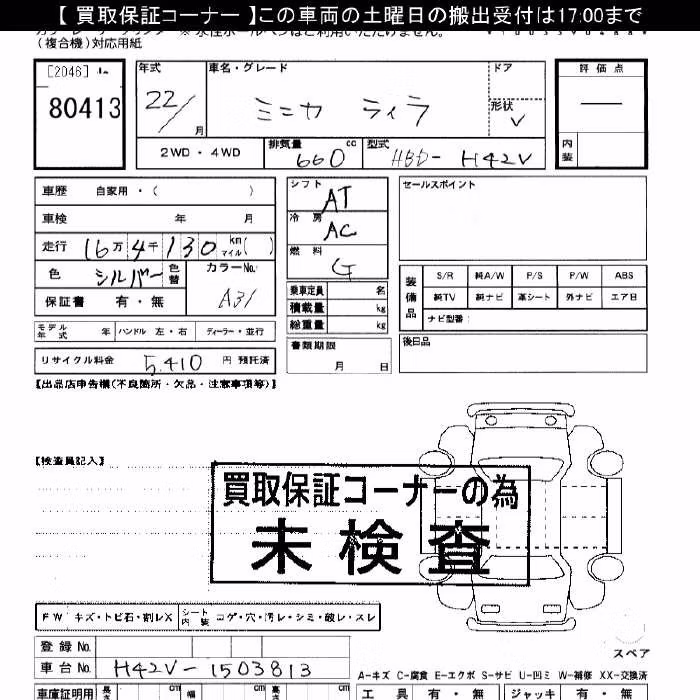 【 買取保証コーナー 】この車両の土曜日の搬出受付は17:00まで
(複合機)対応用紙
[2046]
80413
年式
車名・グレード
ドア
評 価 点
22/
月
ミニカ ライラ
形状
V
—
2WD ・ 4WD
排気量
660
cc
型式
HBD- H42V
内装
車歴 自家用 ・ ( )
車検 年 月
走行 16万 4千 130 km マイル ( )
色 シルバー 色替
カラーNo.
A31
保証書 有 ・ 無
シフト
AT
冷 房
AC
燃 料
G
乗車定員 名
積載量 kg
総重量 kg
セールスポイント
装備品
S/R 純A/W P/S P/W ABS
純TV 純ナビ 革シート 外ナビ エア日
ナビ型番:
モデル年式 年 ハンドル 左・右 ディーラー・並行
書類期限
月 日
後日品
リサイクル料金 5,410 円 預託済
【出品店申告欄(不良箇所・欠品・注意事項等)】
【検査員記入】
買取保証コーナーの為
未検査
FW キズ・トビ石・割レX
シート内装 コゲ・穴・汚レ・シミ・破レ・スレ
スペア
登録 No.
車台 No. H42V-1503813
A-キズ C-腐食 E-エクボ S-サビ U-凹ミ W-補修 XX-交換済
車庫証明用 長さ cm 幅 cm 高さ cm
工 具 有 ・ 無 ジャッキ 有 ・ 無